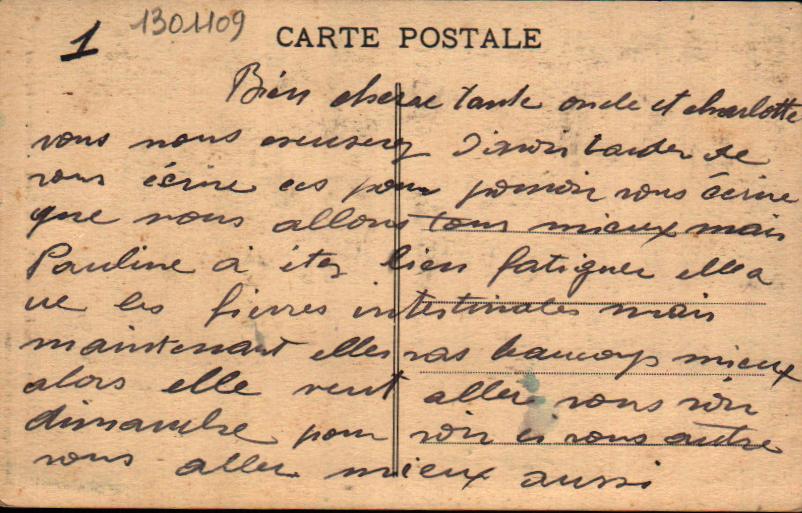 1
1301109
CARTE POSTALE
Bien cherre tante oncle et charlotte
vous nous excuserez d'avoir tarder de
vous écrire ces pour pouvoir vous écrire
que nous allons tous mieux mais
Pauline à étez bien fatiguer elle a
ue les fievres intestinales mais
maintenant elle vas beaucoup mieux
alors elle veut aller vous voir
dimanche pour voir ci vous autre
vous aller mieux aussi